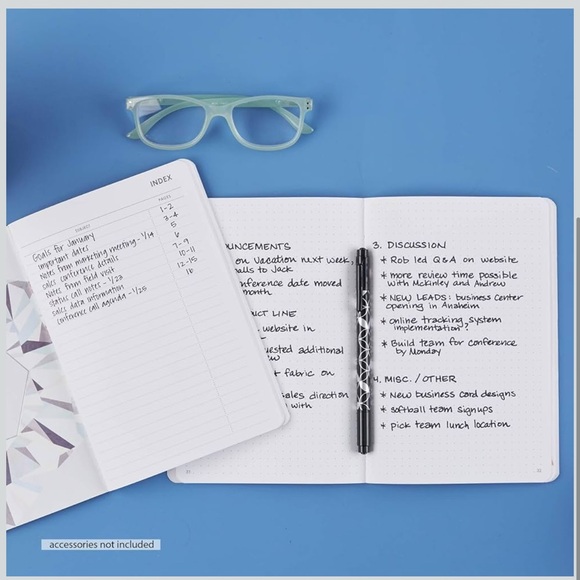 INDEX
SUBJECT
PAGES
Goals for January 1-2
Important dates 3-4
Notes from marketing meeting - 1/14 5
sales conference details 6
Notes from field visit 7-9
status call notes - 1/23 10-11
sales data information 12-15
conference call agenda - 1/25 16
UNCEMENTS
on vacation next week,
alls to Jack
nference date moved
month
UCT LINE
website in
uested additional
ew
t fabric on
sales direction
with
3. DISCUSSION
* Rob led Q&A on website
* more review time possible
with McKinley and Andrew
* NEW LEADS: business Center
opening in Anaheim
* online tracking system
implementation?
* Build team for conference
by Monday
4. MISC. / OTHER
* New business card designs
* softball team signups
* pick team lunch location
accessories not included